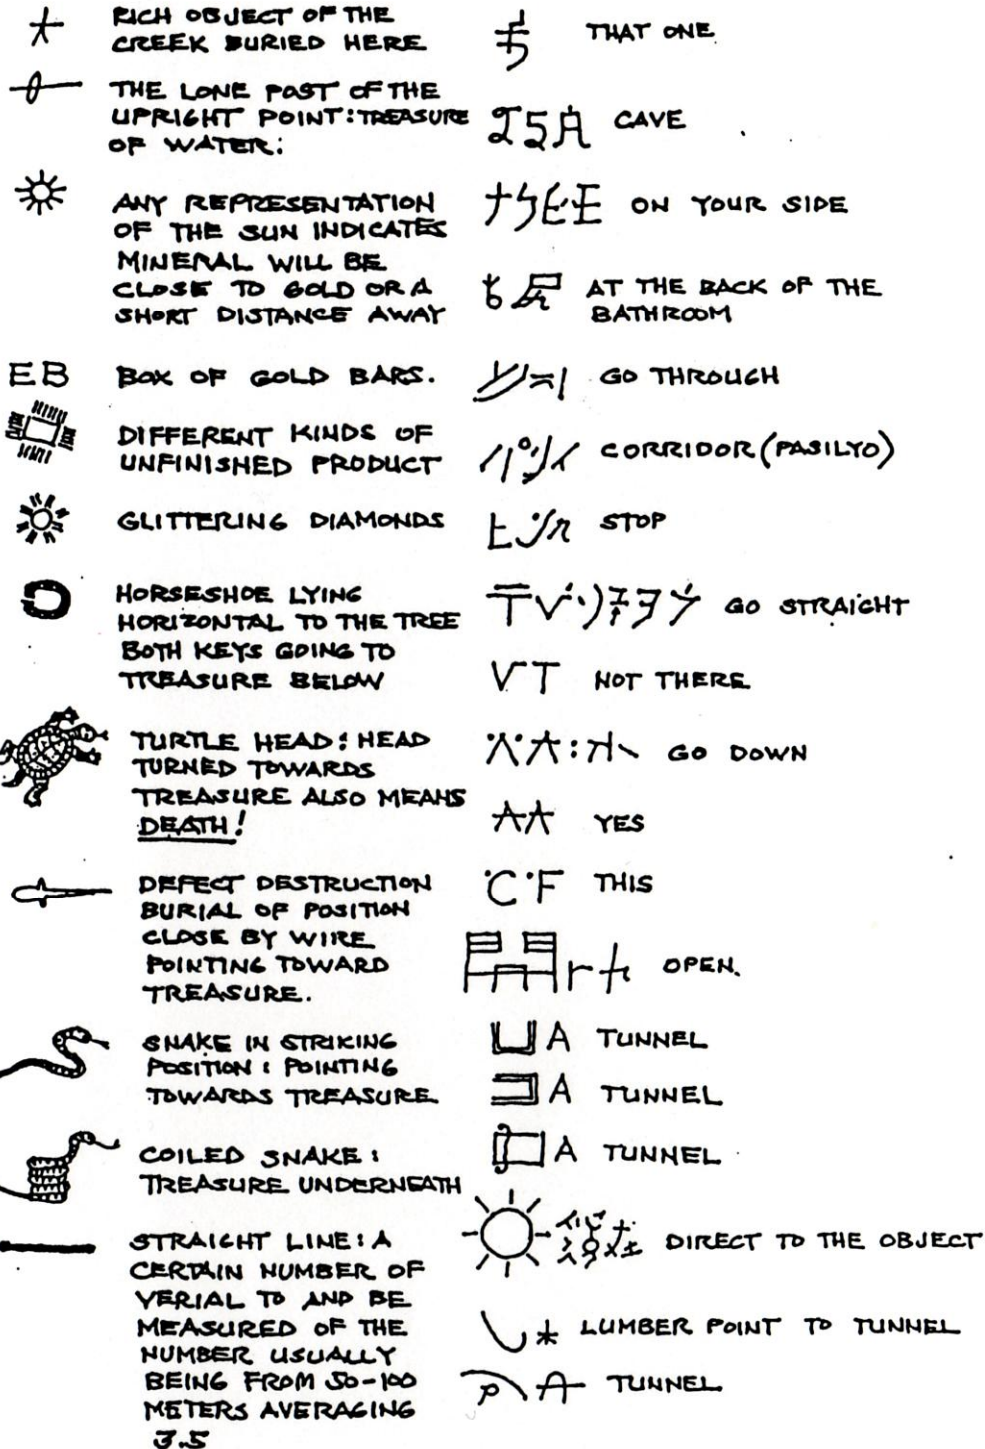 RICH OBJECT OF THE
CREEK BURIED HERE
THE LONE POST OF THE
UPRIGHT POINT: TREASURE
OF WATER:
ANY REPRESENTATION
OF THE SUN INDICATES
MINERAL WILL BE
CLOSE TO GOLD OR A
SHORT DISTANCE AWAY
EB BOX OF GOLD BARS.
DIFFERENT KINDS OF
UNFINISHED PRODUCT
GLITTERING DIAMONDS
HORSESHOE LYING
HORIZONTAL TO THE TREE
BOTH KEYS GOING TO
TREASURE BELOW
TURTLE HEAD: HEAD
TURNED TOWARDS
TREASURE ALSO MEANS
DEATH!
DEFECT DESTRUCTION
BURIAL OF POSITION
CLOSE BY WIRE
POINTING TOWARD
TREASURE.
SNAKE IN STRIKING
POSITION: POINTING
TOWARDS TREASURE
COILED SNAKE:
TREASURE UNDERNEATH
STRAIGHT LINE: A
CERTAIN NUMBER OF
VERIAL TO AND BE
MEASURED OF THE
NUMBER USUALLY
BEING FROM 50-100
METERS AVERAGING
3.5
THAT ONE
CAVE
ON YOUR SIDE
AT THE BACK OF THE
BATHROOM
GO THROUGH
CORRIDOR (PASILYO)
STOP
GO STRAIGHT
VT NOT THERE
GO DOWN
YES
THIS
OPEN.
A TUNNEL
A TUNNEL
A TUNNEL
DIRECT TO THE OBJECT
LUMBER POINT TO TUNNEL
TUNNEL